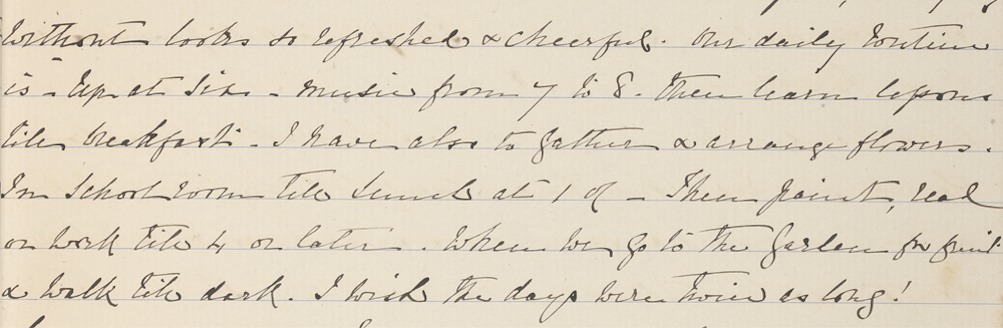 without looks so refreshed & cheerful. Our daily routine
is - Up at six - music from 7 to 8. Then learn lessons
till breakfast - I have also to gather & arrange flowers.
In School room till lunch at 1 - Then paint, read
or work till 4 or later. When we go to the garden for fruit
& walk till dark. I wish the days were twice as long!